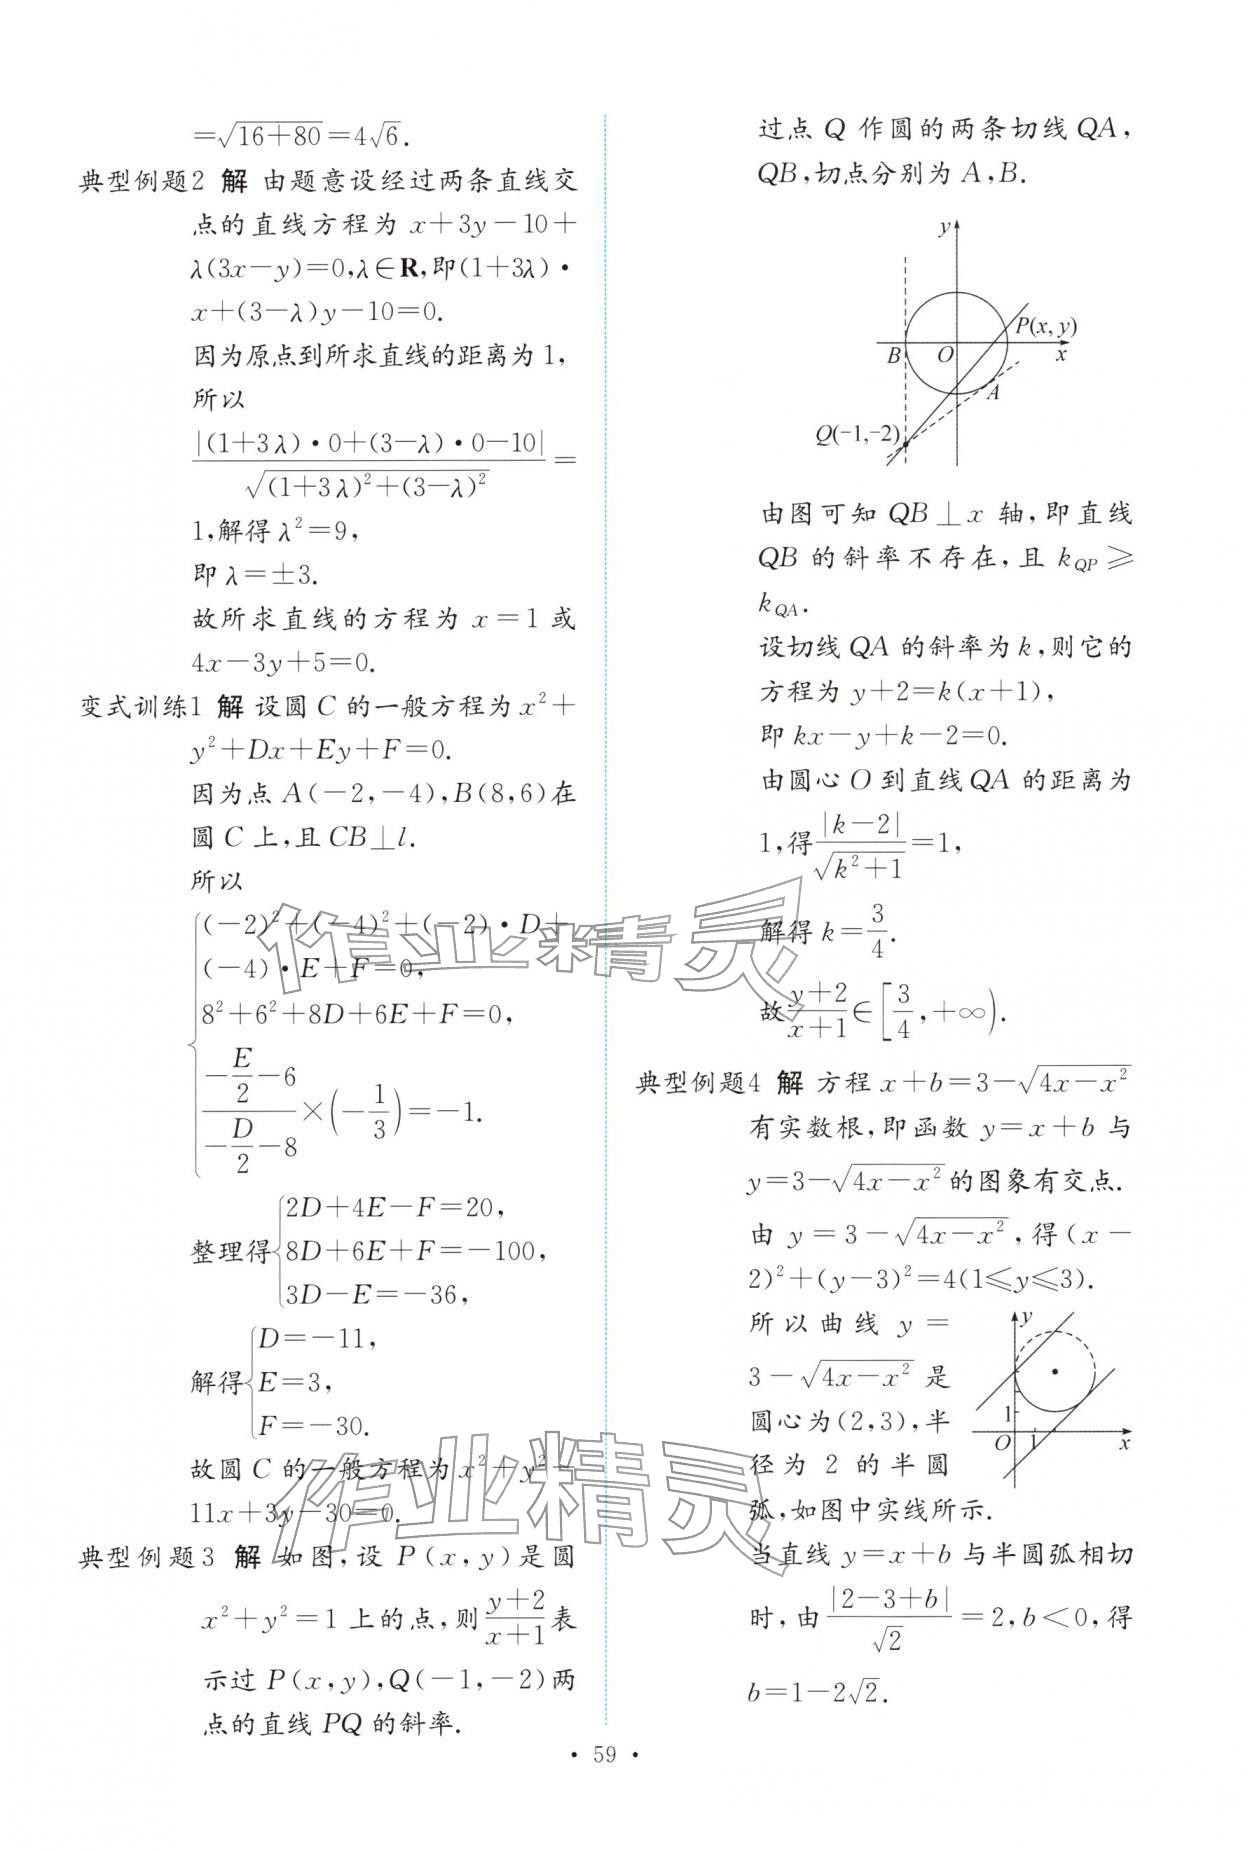 =√(16+80)=4√6.
典型例题2 解 由题意设经过两条直线交
点的直线方程为 x+3y-10+
λ(3x-y)=0,λ∈R,即(1+3λ)·
x+(3-λ)y-10=0.
因为原点到所求直线的距离为1,
所以
|(1+3λ)·0+(3-λ)·0-10|/√((1+3λ)²+(3-λ)²)=
1,解得 λ²=9,
即 λ=±3.
故所求直线的方程为 x=1 或
4x-3y+5=0.
变式训练1 解 设圆 C 的一般方程为 x²+
y²+Dx+Ey+F=0.
因为点 A(-2,-4),B(8,6)在
圆 C 上,且 CB⊥l.
所以
{(-2)²+(-4)²+(-2)·D+
(-4)·E+F=0,
8²+6²+8D+6E+F=0,
(-E/2-6)/(-D/2-8)×(-1/3)=-1.
整理得{2D+4E-F=20,
8D+6E+F=-100,
3D-E=-36,
解得{D=-11,
E=3,
F=-30.
故圆 C 的一般方程为 x²+y²-
11x+3y-30=0.
典型例题3 解 如图,设 P(x,y)是圆
x²+y²=1 上的点,则(y+2)/(x+1)表
示过 P(x,y),Q(-1,-2)两
点的直线 PQ 的斜率.
过点 Q 作圆的两条切线 QA,
QB,切点分别为 A,B.
y
P(x, y)
B O x
A
Q(-1,-2)
由图可知 QB⊥x 轴,即直线
QB 的斜率不存在,且 k_QP≥
k_QA.
设切线 QA 的斜率为 k,则它的
方程为 y+2=k(x+1),
即 kx-y+k-2=0.
由圆心 O 到直线 QA 的距离为
1,得|k-2|/√(k²+1)=1,
解得 k=3/4.
故(y+2)/(x+1)∈[3/4,+∞).
典型例题4 解 方程 x+b=3-√(4x-x²)
有实数根,即函数 y=x+b 与
y=3-√(4x-x²)的图象有交点.
由 y=3-√(4x-x²),得(x-
2)²+(y-3)²=4(1≤y≤3).
所以曲线 y=
3-√(4x-x²) 是
圆心为(2,3),半
径为 2 的半圆
弧,如图中实线所示.
y
1
O 1 x
当直线 y=x+b 与半圆弧相切
时,由|2-3+b|/√2=2,b<0,得
b=1-2√2.
· 59 ·
作业精灵
作业精灵